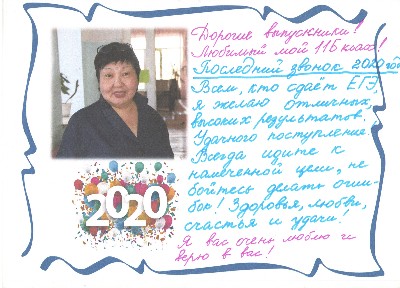 Дорогие выпускники!
Любимый мой 11Б класс!
Последний звонок 2020 год
Всем, кто сдаёт ЕГЭ,
я желаю отличных,
высоких результатов.
Удачного поступления.
Всегда идите к
намеченной цели, не
бойтесь делать оши-
бок! Здоровья, любви,
счастья и удачи!
Я вас очень люблю и
верю в вас!
2020